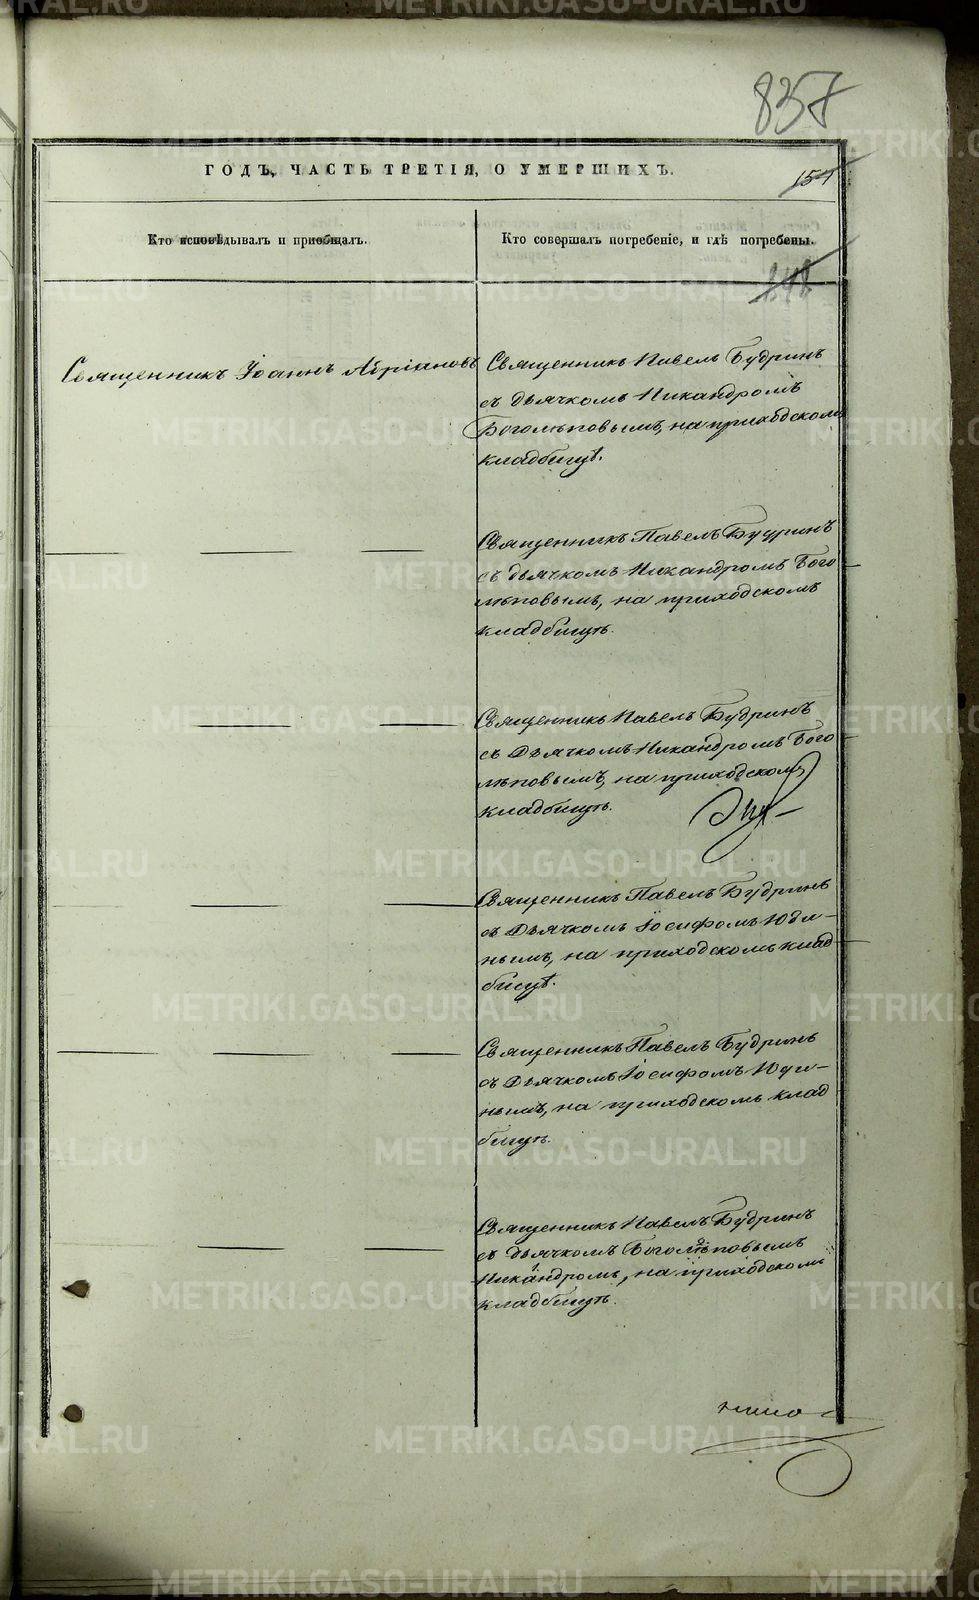 837
ГОДЪ, ЧАСТЬ ТРЕТІЯ, О УМЕРШИХЪ.
154
Кто исповѣдывалъ и пріобщалъ.
Кто совершалъ погребеніе, и гдѣ погребены.
Священникъ Іоаннъ Адріановъ
Священникъ Павелъ Будринъ
съ дьячкомъ Никандромъ
Боголѣповымъ, на приходскомъ
кладбищѣ.
Священникъ Павелъ Будринъ
съ дьячкомъ Никандромъ Бого
лѣповымъ, на приходскомъ
кладбищѣ.
Священникъ Павелъ Будринъ
съ Дьячкомъ Никандромъ Бого
лѣповымъ, на приходскомъ
кладбищѣ.
Священникъ Павелъ Будринъ
съ Дьячкомъ Іосифомъ Юди-
нымъ, на приходскомъ клад
бищѣ.
Священникъ Павелъ Будринъ
съ Дьячкомъ Іосифомъ Юди-
нымъ, на приходскомъ клад
бищѣ.
Священникъ Павелъ Будринъ
съ дьячкомъ Боголѣповымъ
Никандромъ, на приходскомъ
кладбищѣ.
METRIKI.GASO-URAL.RU